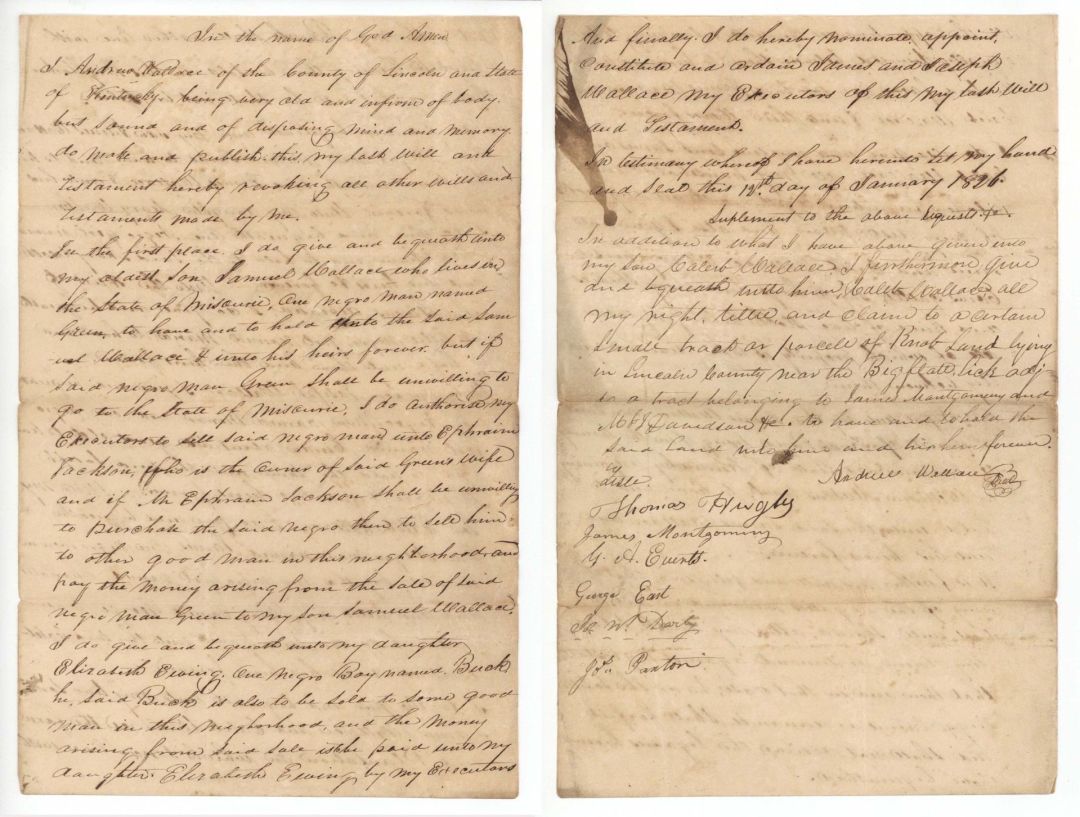 In the name of God Amen
I Andrew Wallace of the County of Lincoln and State
of Kentucky. being very old and infirm of body.
but sound and of disposing mind and memory.
do make and publish this my last will and
Testament hereby revoking all other wills and
Testaments made by me.
In the first place I do give and bequeath unto
my oldest Son Samuel Wallace who lives in
the State of Miscurie, One negro man named
Green, to have and to hold unto the said Sam
uel Wallace & unto his heirs forever. but if
said negro man Green shall be unwilling to
go to the State of Miscurie, I do authorise my
Executors to sell said negro man unto Ephraim
Jackson, who is the owner of said Greens wife
and if Mr Ephraim Jackson shall be unwilling
to purchase the said negro then to sell him
to other good man in this neighborhood, and
pay the money arising from the sale of said
negro man Green to my son Samuel Wallace.
I do give and bequeath unto my daughter
Elizabeth Ewing. One negro Boy named. Buck
he, said Buck is also to be sold to some good
man in this neighborhood, and the money
arising from said sale is to be paid unto my
daughter. Elizabeth Ewing by my Executors
And finally. I do hereby nominate, appoint,
Constitute and ordain and Joseph
Wallace my Executors of this my last Will
and Testament.
In testimony whereof I have hereunto set my hand
and seal this 12th day of January 1826.
Suplement to the above bequests &c.
In addition to what I have above given unto
my son Caleb Wallace I furthermore give
and bequeath unto him, Caleb Wallace all
my right, tittle and claim to a certain
small tract or parcell of Knob Land lying
in Lincoln County near the Bigflat lick adj-
to a tract belonging to James Montgomery and
Davidson &c. to have and to hold the
said Land unto him and his heirs forever.
Teste. Andrew Wallace Seal
Thomas Hugly
James Montgomery
A. Everts.
George East
Darby
Jos. Paxton